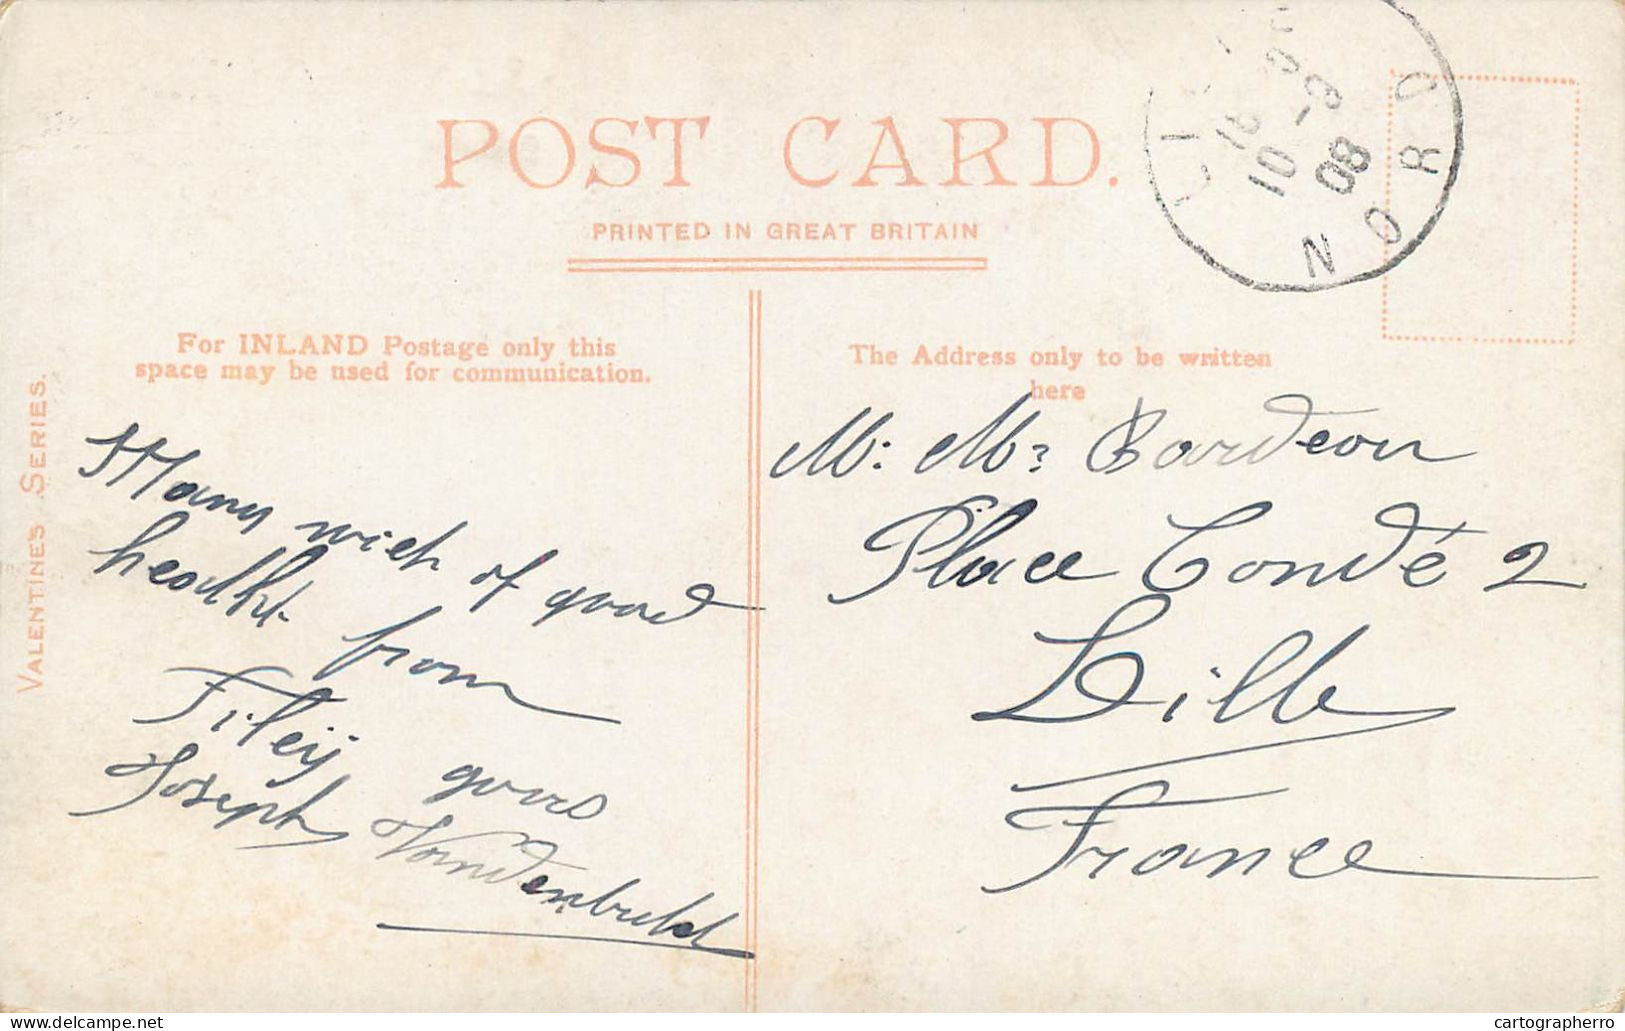 POST CARD.
PRINTED IN GREAT BRITAIN
For INLAND Postage only this
space may be used for communication.
The Address only to be written
here
VALENTINE'S SERIES.
10 - 9
08
NORD
Many wich of good
healht from
Fileij yours
Joseph
M: M: Bardeou
Place Condé 2
Lille
France
delcampe.net
cartographerro